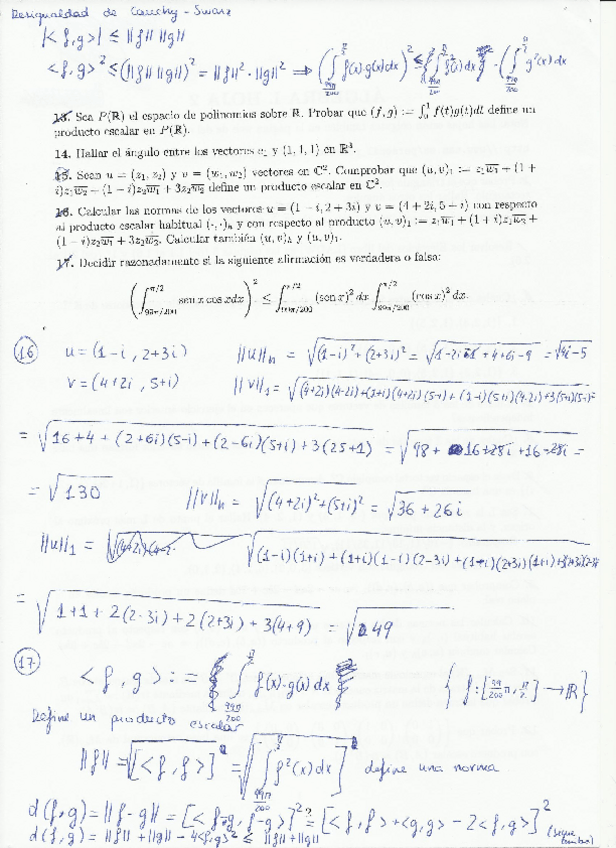 Desigualdad de Cauchy - Swarz
|< f, g >| ≤ ||f|| ||g||
< f, g >² ≤ (||f|| ||g||)² = ||f||² · ||g||² ⇒ (∫ f(x)·g(x)dx)² ≤ ∫ f²(x)dx · (∫ g²(x)dx
13. Sea P(ℝ) el espacio de polinomios sobre ℝ. Probar que (f, g) := ∫₀¹ f(t)g(t)dt define un
producto escalar en P(ℝ).
14. Hallar el ángulo entre los vectores e₁ y (1, 1, 1) en ℝ³.
15. Sean u = (z₁, z₂) y v = (w₁, w₂) vectores en ℂ². Comprobar que (u, v)₁ := z₁w̅₁ + (1 +
i)z₁w̅₂ + (1 − i)z₂w̅₁ + 3z₂w̅₂ define un producto escalar en ℂ².
16. Calcular las normas de los vectores u = (1 − i, 2 + 3i) y v = (4 + 2i, 5 + i) con respecto
al producto escalar habitual (·, ·)ₕ y con respecto al producto (u, v)₁ := z₁w̅₁ + (1 + i)z₁w̅₂ +
(1 − i)z₂w̅₁ + 3z₂w̅₂. Calcular también (u, v)ₕ y (u, v)₁.
17. Decidir razonadamente si la siguiente afirmación es verdadera o falsa:
(∫_{99π/200}^{π/2} sen x cos x dx)² ≤ ∫_{99π/200}^{π/2} (sen x)² dx ∫_{99π/200}^{π/2} (cos x)² dx.
16 u = (1-i, 2+3i) ||u||ₕ = √((1-i)² + (2+3i)²) = √(1-2i-1+4+6i-9) = √(4i-5)
v = (4+2i, 5+i) ||v||₁ = √((4+2i)(4-2i)+(1+i)(4+2i)(5-i)+(1-i)(5+i)(4-2i)+3(5+i)(5-i)
= √(16+4 + (2+6i)(5-i) + (2-6i)(5+i) + 3(25+1)) = √(98 + 16+28i +16-28i) =
= √130 ||v||ₕ = √((4+2i)²+(5+i)²) = √(36 + 26i)
||u||₁ = √((1-i)(1+i) + (1+i)(1-i)(2-3i) + (1-i)(2+3i)(1+i)+3(2+3i)(2-3i)
= √(1+1+ 2(2-3i) + 2(2+3i) + 3(4+9)) = √49
17 < f, g > := ∫_{99π/200}^{π/2} f(x)·g(x) dx { f: [99/200 π, π/2] → ℝ }
Define un producto escalar
||f|| = √[< f, f >] = √[∫ f²(x) dx] define una norma
d(f,g) = ||f-g|| = [< f-g, f-g >]² = [< f, f > + < g, g > - 2< f, g >]²
d(f,g) = ||f|| + ||g|| - 4< f, g >² ≤ ||f|| + ||g|| (sigue